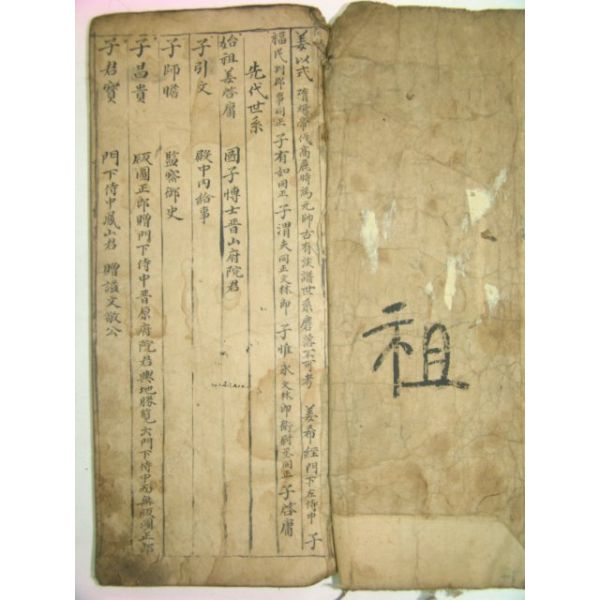 祖
姜以式 隋煬帝伐高麗時爲元帥古有族譜世系磨落不可考 姜希經門下左侍中 子
福民判郎事同正 子有如同正 子渭夫同正文林郎 子惟永文林郎衛尉丞同正 子啓庸
先代世系
始祖姜啓庸 國子博士晋山府院君
子引文 殿中內給事
子師瞻 監察御史
子昌貴 版圖正郎贈門下侍中晋原府院君輿地勝覽六門下侍中而無版圖正郎
子君寶 門下侍中鳳山君 贈諡文敬公